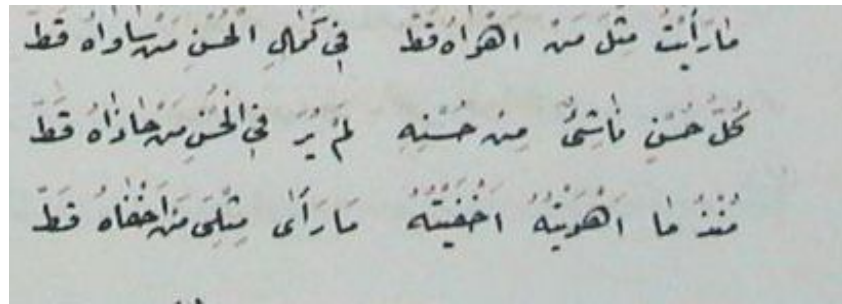 مَا رَأَيْتُ مِثْلَ مَنْ اَهْوَاهُ قَطّ فِي كَمَالِ الْحُسْنِ مَنْ سَاوَاهُ قَطّ
كُلُّ حُسْنٍ نَاشِئٌ مِنْ حُسْنِهِ لَمْ يُرَ فِي الْحُسْنِ مَنْ حَاذَاهُ قَطّ
مُنْذُ مَا اَهْوَيْتُهُ اَخْفَيْتُهُ مَا رَأَى مِثْلِيَ مَنْ اَخْفَاهُ قَطّ